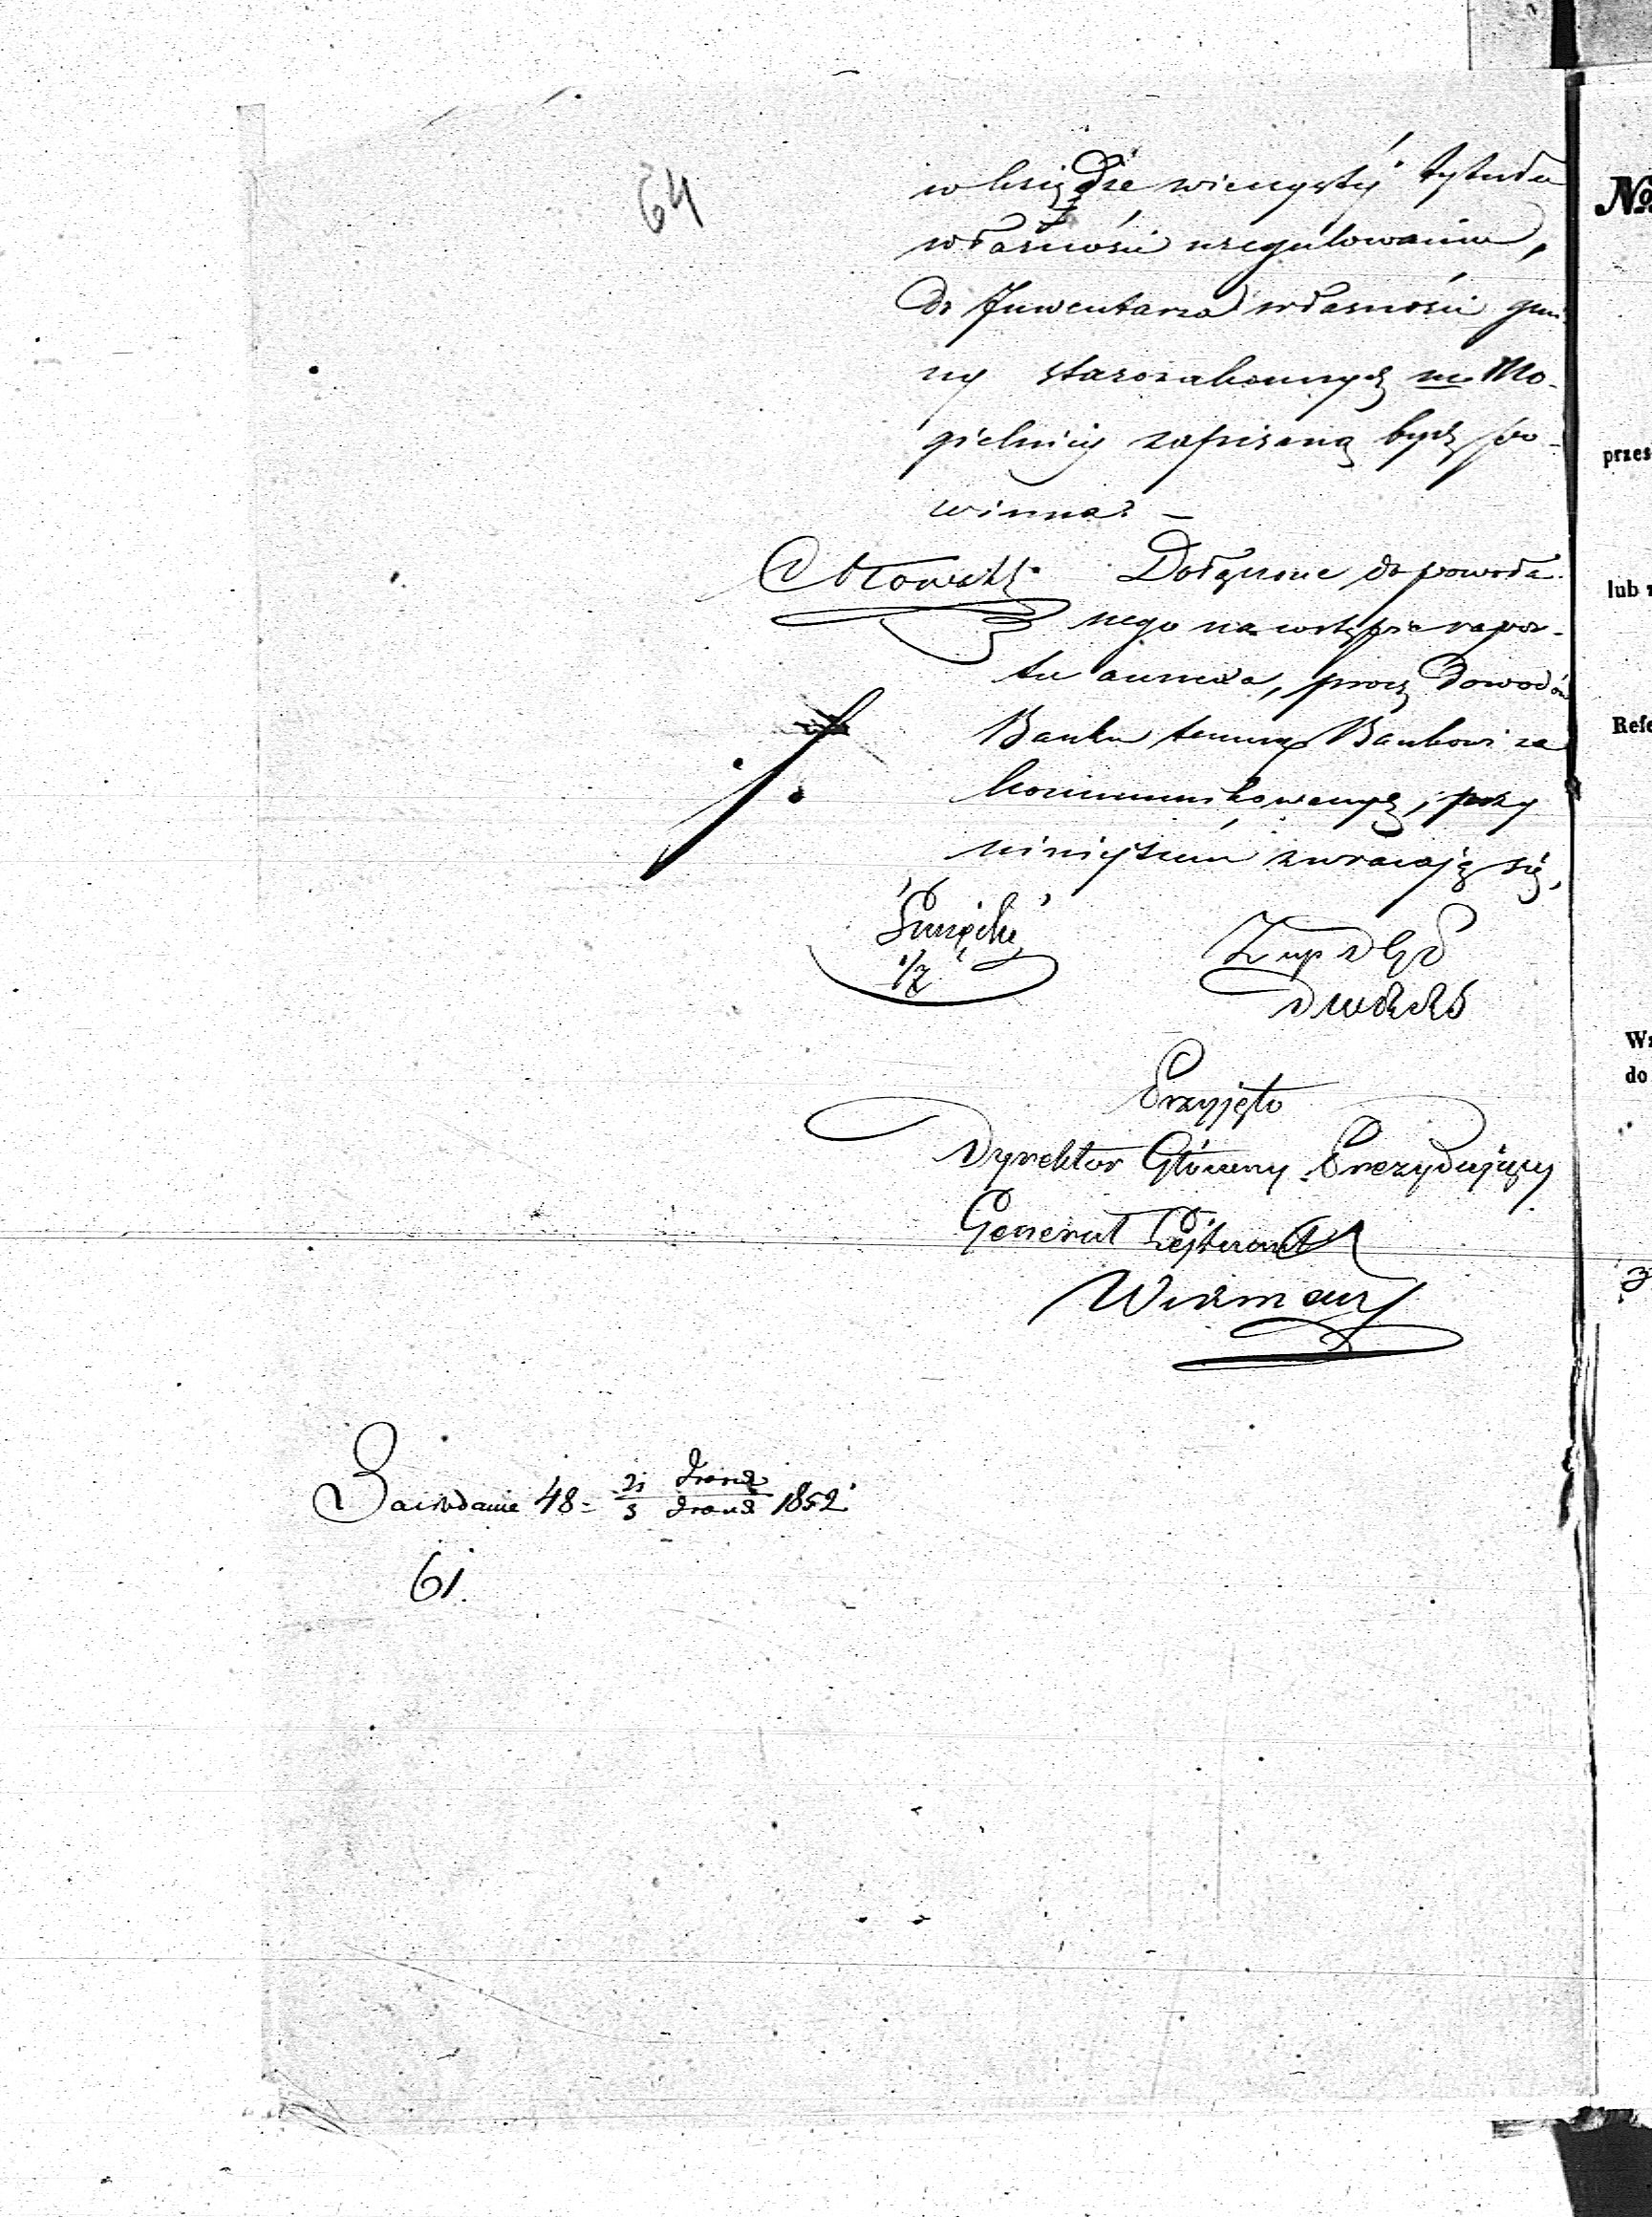 64
w księdze wieczystéj tytułu
własności uregulowaniu,
do Inwentarza własności gmi-
ny starozakonnych w Mo-
gielnicy zapisaną być po-
winna. —
Dołączone do powoła-
nego na wstępie rapor-
tu annexa, prócz dowodów
Banku temuż Bankowi za
kommunikowanych, przy
niniejszém zwracają się,
Przyjęto
Dyrektor Główny Prezydujący
Generał Lejtnant
Wikman
48 = 1852
61.
No
przes
lub
Refe
Wz
do